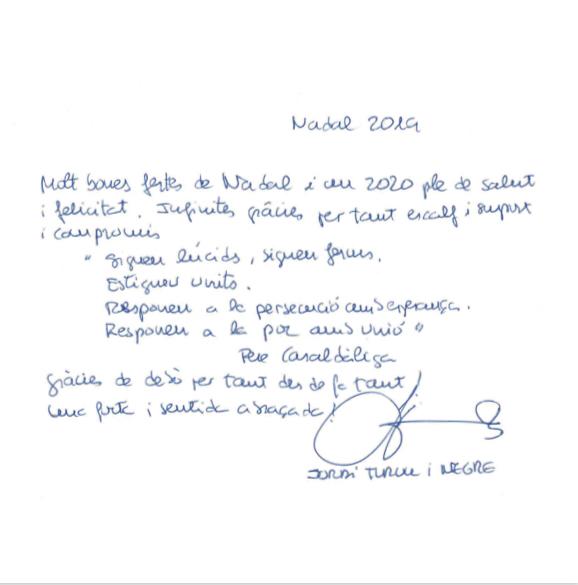 Nadal 2019
Molt bones festes de Nadal i un 2020 ple de salut
i felicitat. Infinites gràcies per tant escalf i suport
i compromís
"Sigueu lúcids, sigueu ferms.
Estigueu units.
Responeu a la persecució amb esperança.
Responeu a la por amb unió"
Pere Casaldàliga
Gràcies de debò per tant des de fa tant!
Una forta i sentida abraçada!
JORDI TURULL i NEGRE